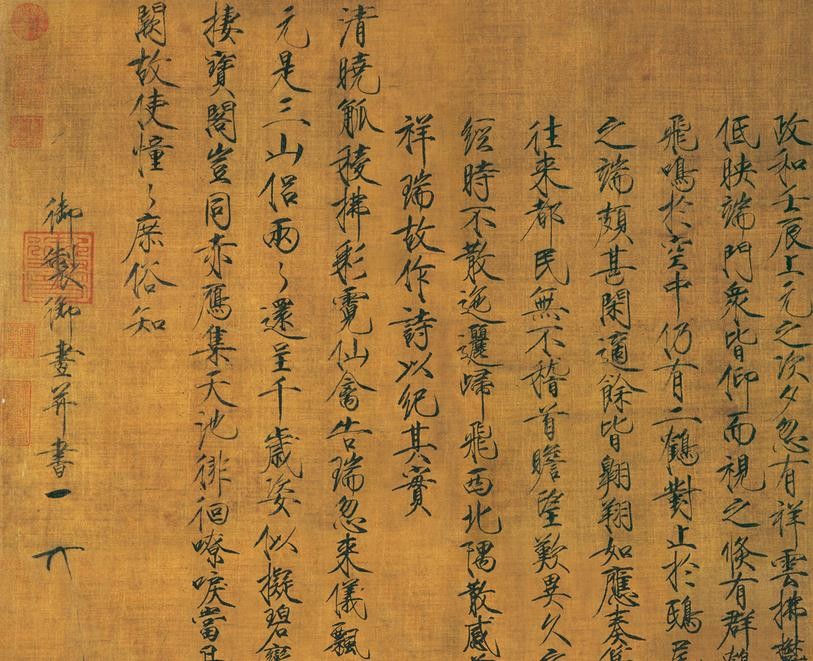 政和壬辰上元之次夕忽有祥雲拂
低映端門衆皆仰而視之倏有群
飛鳴於空中仍有二鶴對止於鴟
之端頗甚閑適餘皆翱翔如應奏
往來都民無不稽首瞻望歎異久
經時不散迤邐歸飛西北隅散感
祥瑞故作詩以紀其實
清曉觚稜拂彩霓仙禽告瑞忽來儀飄
元是三山侶兩〻還呈千歲姿似擬碧鸞
棲寶閣豈同赤鴈集天池徘徊嘹唳當
闕故使憧〻庶俗知
御製御畫并書